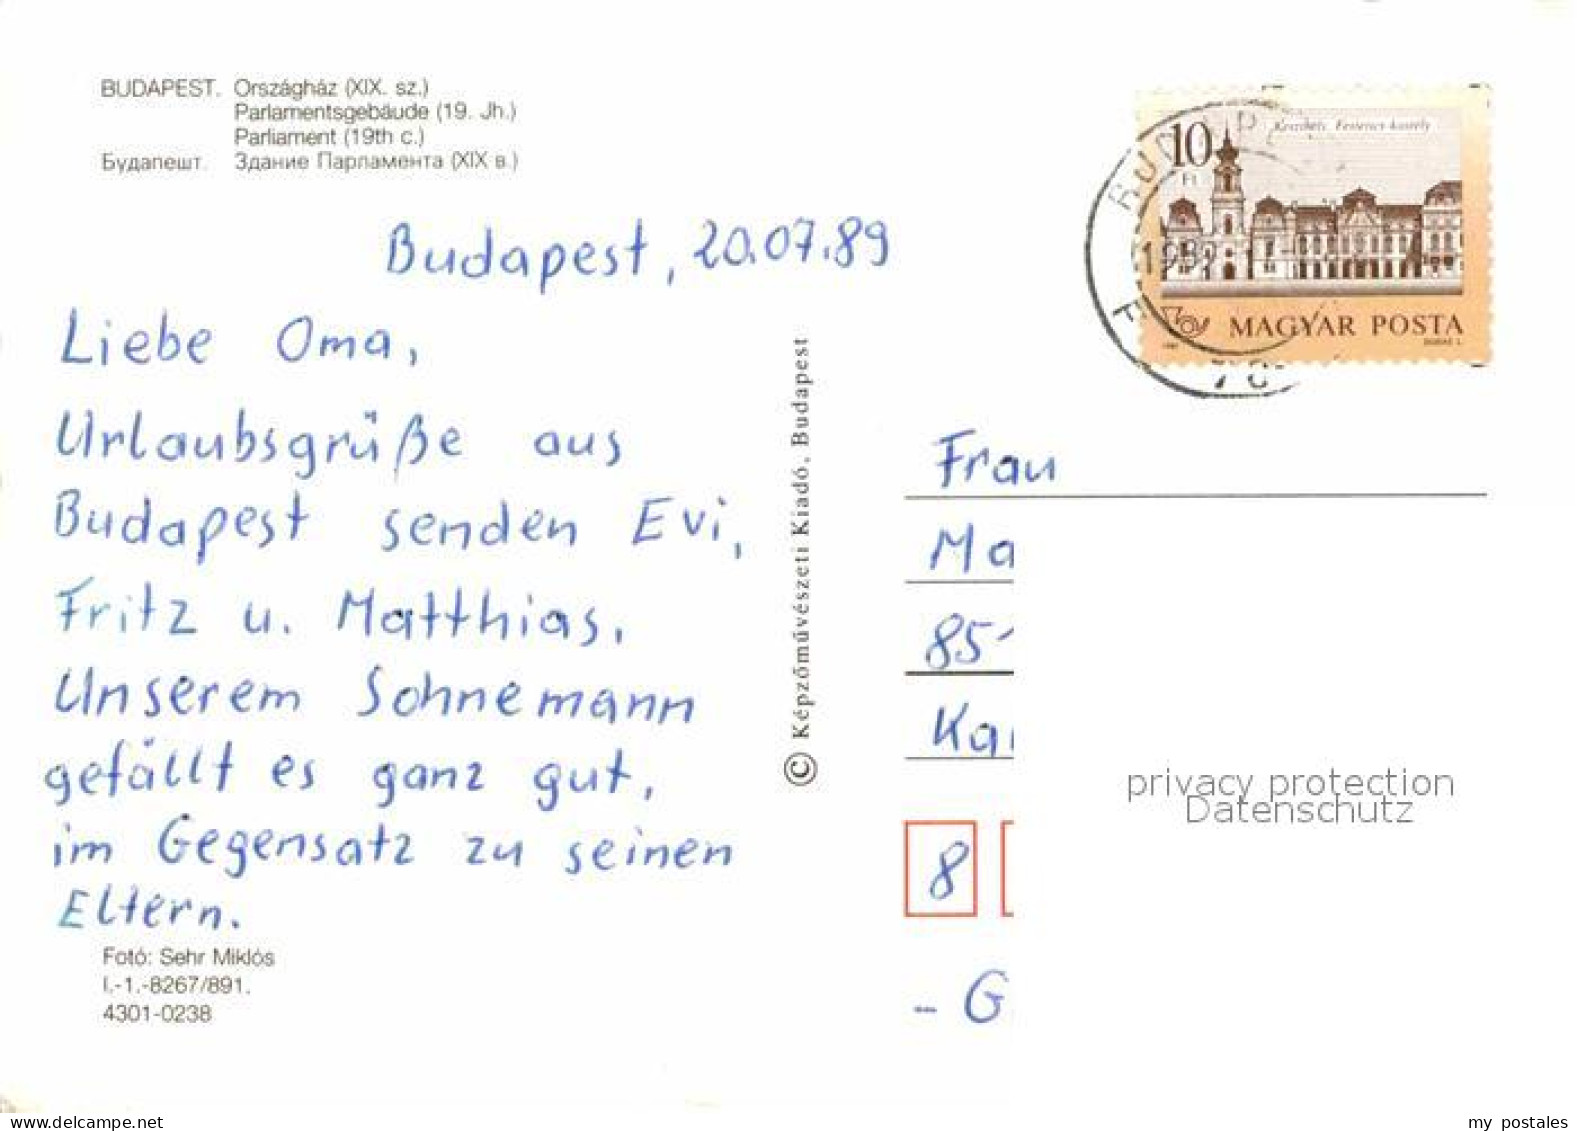 BUDAPEST. Országház (XIX. sz.)
Parlamentsgebäude (19. Jh.)
Parliament (19th c.)
Будапешт. Здание Парламента (XIX в.)
Budapest, 20.07.89
Liebe Oma,
Urlaubsgrüße aus
Budapest senden Evi,
Fritz u. Matthias.
Unserem Sohnemann
gefällt es ganz gut,
im Gegensatz zu seinen
Eltern.
Fotó: Sehr Miklós
I.-1.-8267/891.
4301-0238
© Képzőművészeti Kiadó, Budapest
10
Ft
Keszthely, Festetics-kastély
MAGYAR POSTA
Frau
Ma
85
Ka
8
- G
privacy protection
Datenschutz
www.delcampe.net
my postales